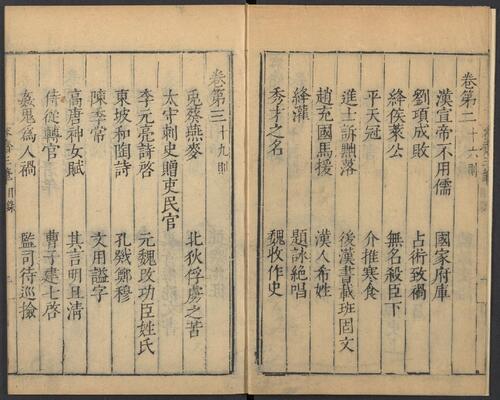 卷第二 十六則
漢宣帝不用儒 國家府庫
劉項成敗 占術致禍
絳侯萊公 無名殺臣下
平天冠 介推寒食
進士訴黜落 後漢書載班固文
趙充國馬援 漢人希姓
絳灌 題詠絕唱
秀才之名 魏收作史
卷第三 十九則
兔葵燕麥 北狄俘虜之苦
太守刺史贈吏民官
李元亮詩啓 元魏改功臣姓氏
東坡和陶詩 孔戣鄭穆
陳季常 文用謚字
高唐神女賦 其言明且清
侍從轉官 曹子建七啓
姦鬼爲人禍 監司待巡檢